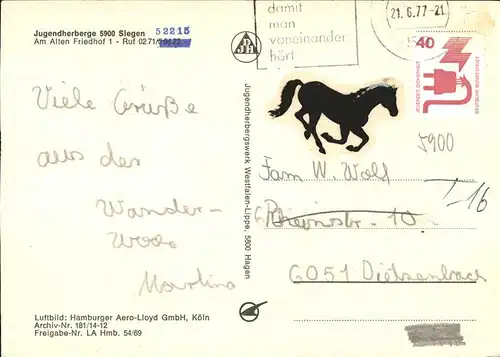 Jugendherberge 5900 Siegen
52215
Am Alten Friedhof 1 - Ruf 0271/
DJH
damit
man
voneinander
hört
21.6.77-21
40
JEDERZEIT SICHERHEIT
DEUTSCHE BUNDESPOST
5900
Viele Grüße
aus der
Wander-
Martina
Jugendherbergswerk Westfalen-Lippe, 5800 Hagen
Fam W. Wolf
6051 Dietzenbach
Luftbild: Hamburger Aero-Lloyd GmbH, Köln
Archiv-Nr. 181/14-12
Freigabe-Nr. LA Hmb. 54/69